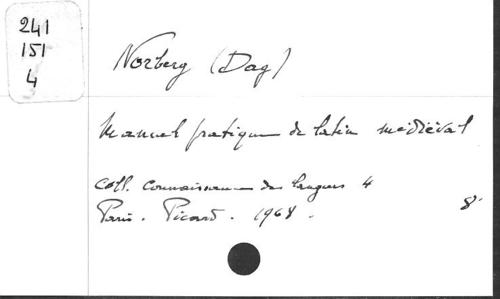 241
151
4
Norberg (Dag)
Manuel pratique de latin médiéval
Coll. Connaissance des langues 4
Paris. Picard. 1968.
8°